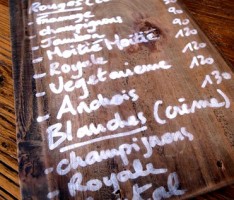 Rouges (
- Fromage 90
- champignons 90
- Jambon 120
- Moitié Moitié 120
- Royale 130
- Végétarienne 130
- Anchois
Blanches (crème)
- champignons
- Royale